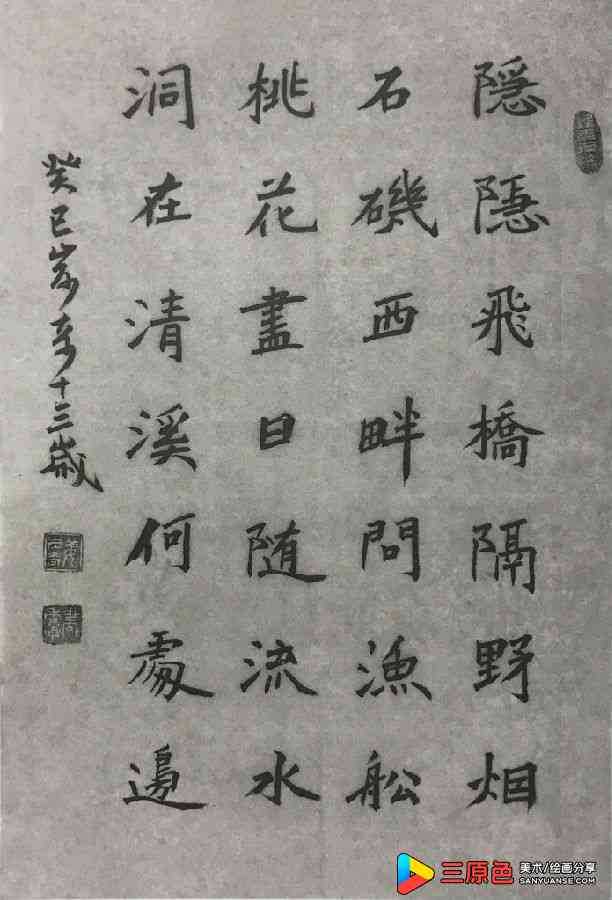 隱隱飛橋隔野烟
石磯西畔問漁船
桃花盡日随流水
洞在清溪何處邊
三原色 美术/绘画分享
SANYUANSE.COM